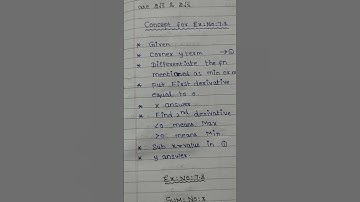 are 2√2 & 2√2
Concept for Ex:No:7.8
* Given
* Convex y term → ①
* Differentiate the fn
mentioned as min or m
* put First derivative
equal to 0
* x answer
* Find 2nd derivative
<0 means Max
>0 means Min
* Sub x value in ①
* y answer.
Ex:No:7.8
Sum:No:8